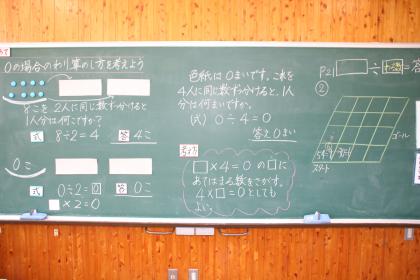 めて
0の場合のわり算のし方を考えよう
8こを2人に同じ数ずつ分けると
1人分は何こですか?
式 8÷2=4 答 4こ
0こ
式 0÷2=0 答 0こ
□×2=0
色紙は0まいです。これを
4人に同じ数ずつ分けると、1人
分は何まいですか。
(式) 0÷4=0
答え0まい
考え方
□×4=0の□に
あてはまる数をさがす。
4×□=0としても
よい。
P21 □÷ =答
②
ゴール
スタート